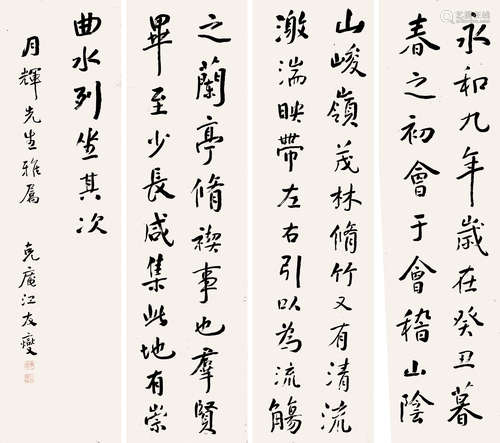 永和九年歲在癸丑暮
春之初會于會稽山陰
山峻嶺茂林脩竹又有清流
激湍映帶左右引以為流觴
之蘭亭脩禊事也羣賢
畢至少長咸集此地有崇
曲水列坐其次
月輝先生雅屬 克庵江友燮